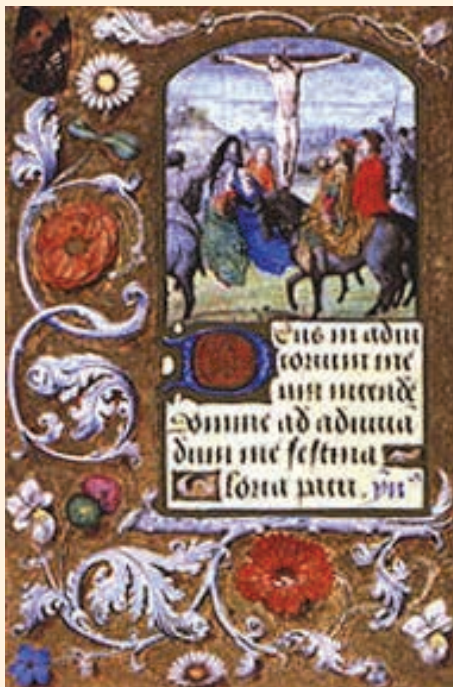 Deus in adiu
torium me
um intende
Domine ad adiuua
dum me festina
Gloria patri.